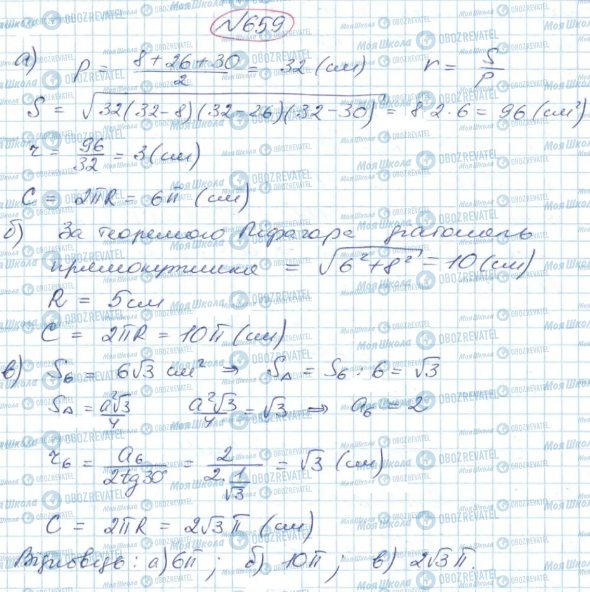 №659
а) p = (8+26+30)/2 = 32 (см) r = S/p
S = √(32(32-8)(32-26)(32-30)) = 8·2·6 = 96 (см²)
r = 96/32 = 3 (см)
C = 2πR = 6π (см)
б) За теоремою Піфагора діагональ
прямокутника = √(6²+8²) = 10 (см)
R = 5 см
C = 2πR = 10π (см)
в) S₆ = 6√3 см² ⇒ S△ = S₆ : 6 = √3
S△ = a²√3/4 a²√3/4 = √3 ⇒ a₆ = 2
r₆ = a₆/(2tg30°) = 2/(2·1/√3) = √3 (см)
C = 2πR = 2√3π (см)
Відповідь: а) 6π; б) 10π; в) 2√3π.